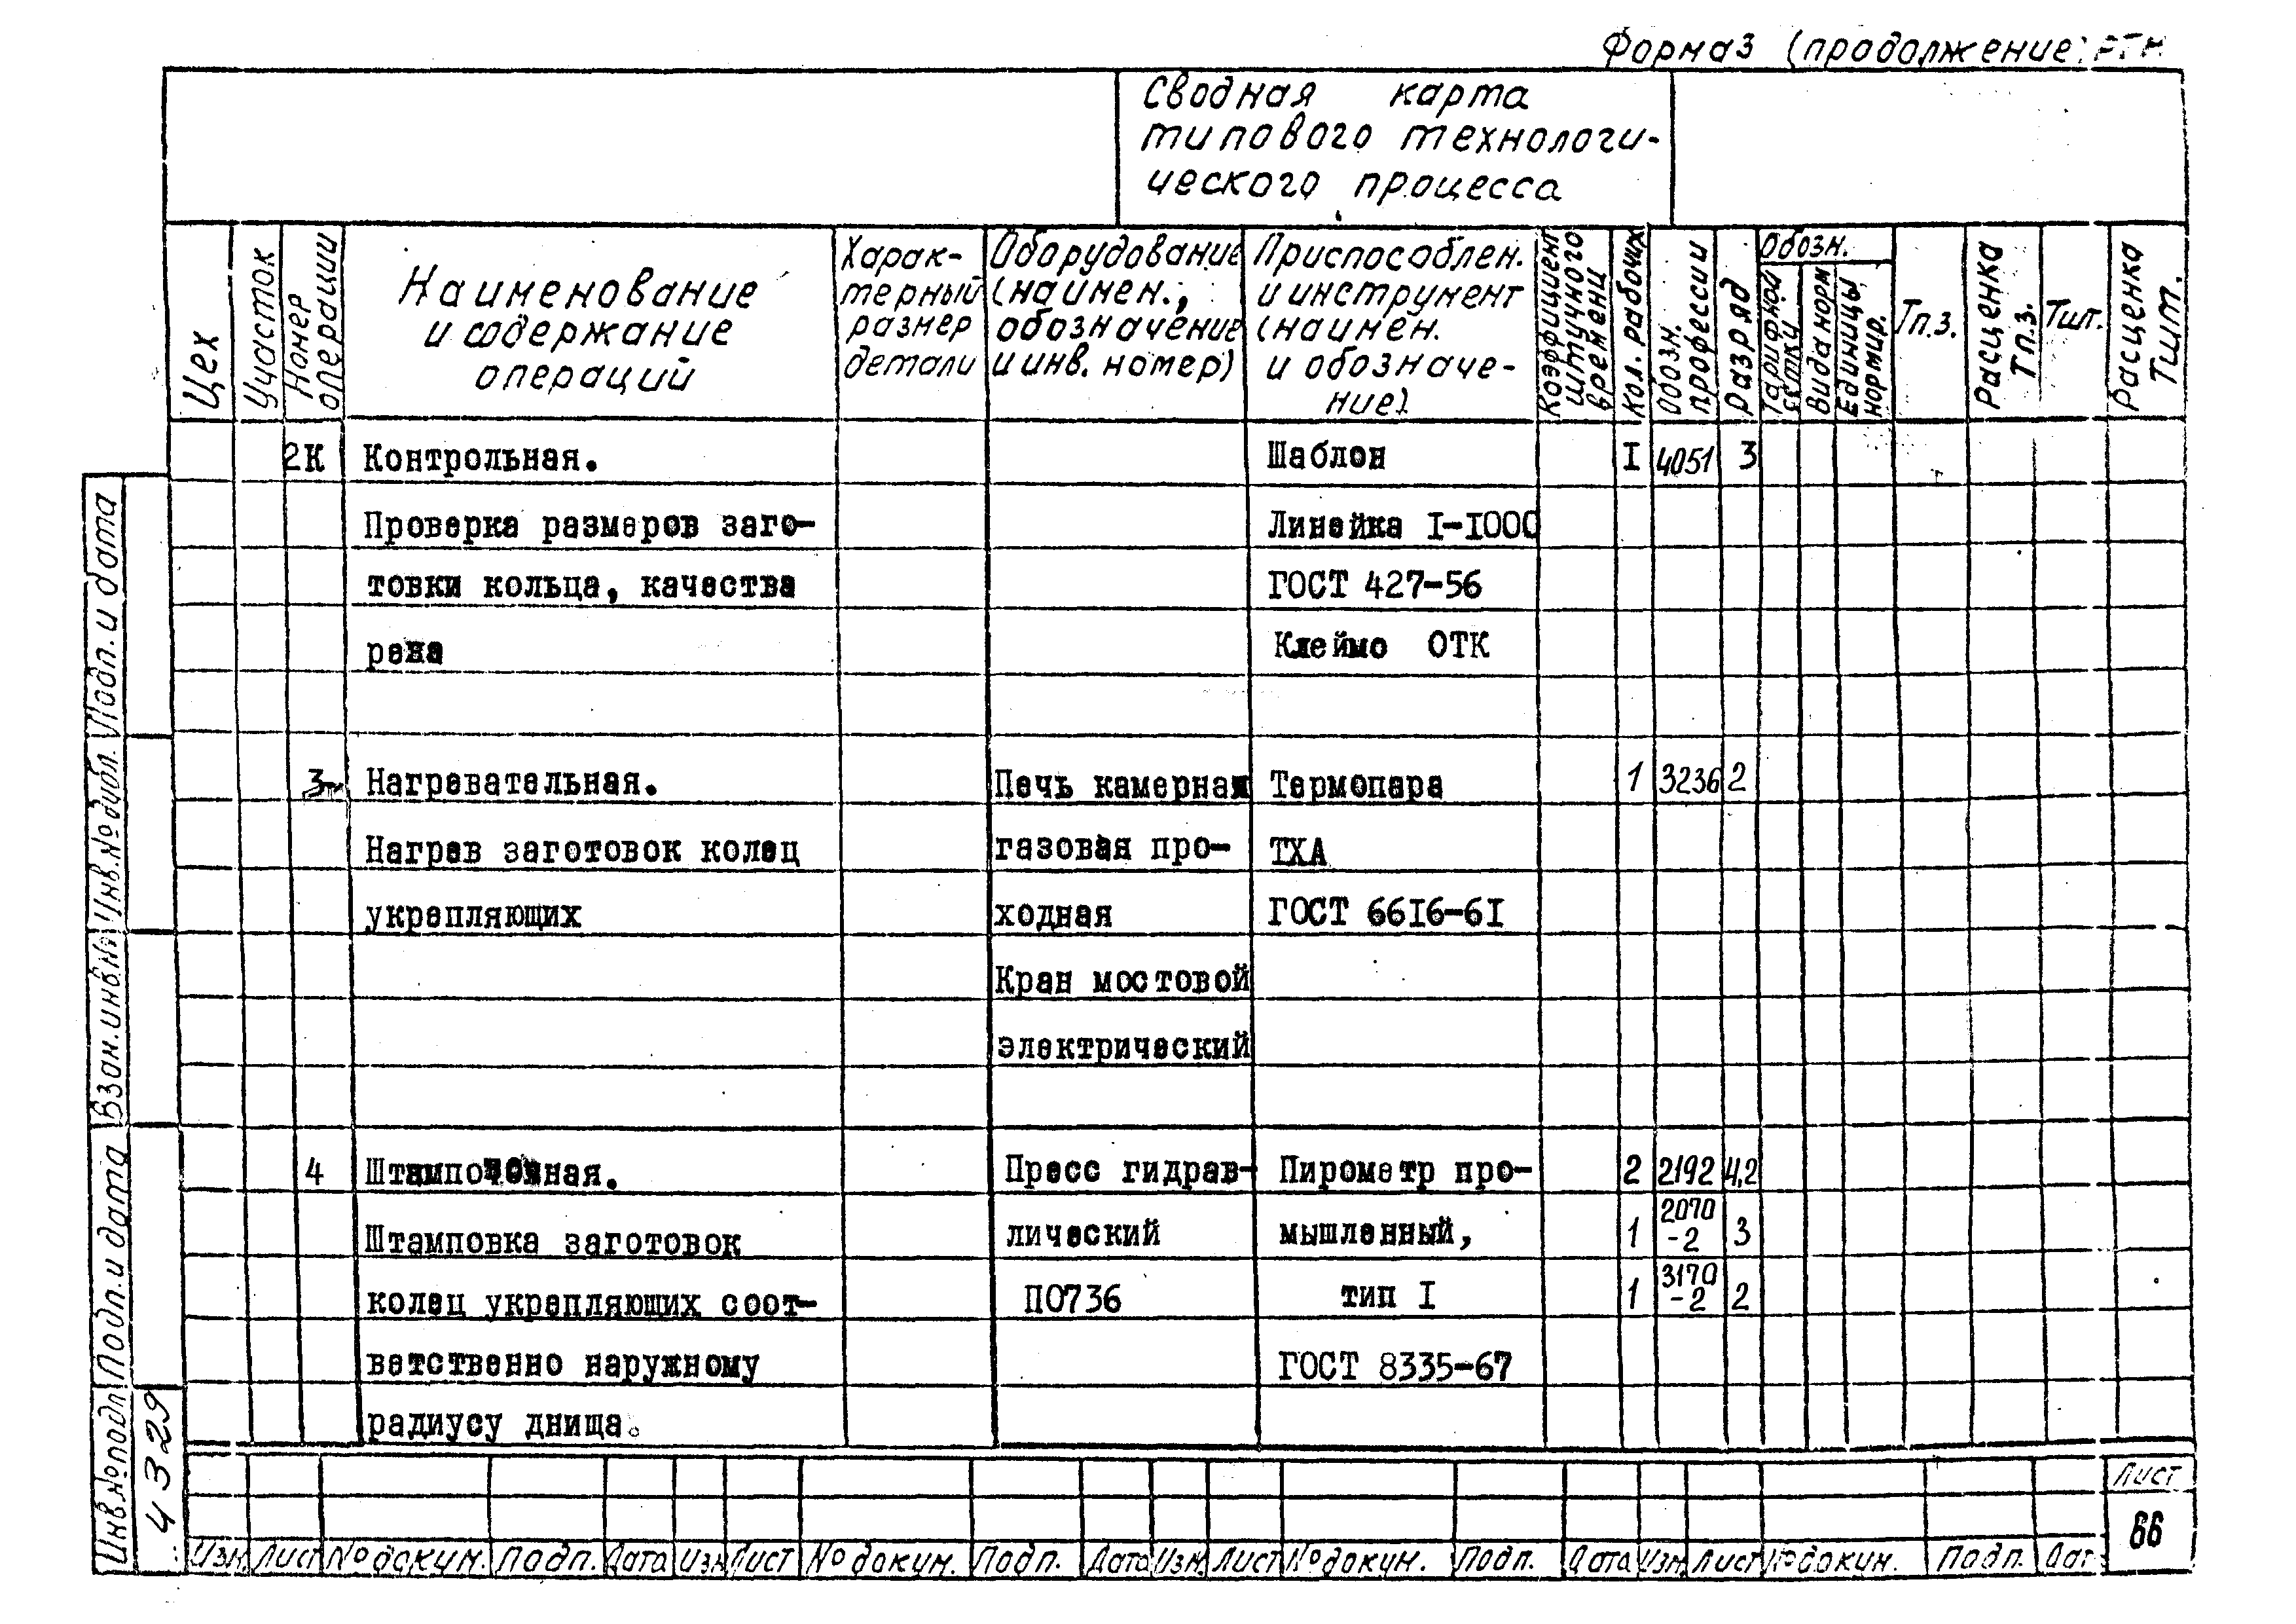 Форма 3 (продолжение) РТМ
Сводная карта
типового технологи-
ческого процесса
Цех
Участок
Номер операции
Наименование
и содержание
операций
Харак-
терный
размер
детали
Оборудование
(наимен.,
обозначение
и инв. номер)
Приспособлен.
и инструмент
(наимен.
и обозначе-
ние)
Коэффициент штучного времени
Кол. рабочих
Обозн. профессии
Разряд
Обозн.
Тарифной сетки
Вида норм
Единицы нормир.
Тп.з.
Расценка Тп.з.
Тшт.
Расценка Тшт.
2К Контрольная. Шаблон I 4051 3
Проверка размеров заго- Линейка I-I000
товки кольца, качества ГОСТ 427-56
реза Клеймо ОТК
3 Нагревательная. Печь камерная Термопара 1 3236 2
Нагрев заготовок колец газовая про- ТХА
укрепляющих ходная ГОСТ 66I6-6I
Кран мостовой
электрический
4 Штамповочная. Пресс гидрав- Пирометр про- 2 2192 4,2
Штамповка заготовок лический мышленный, 1 2070-2 3
колец укрепляющих соот- ПО736 тип I 1 3170-2 2
ветственно наружному ГОСТ 8335-67
радиусу днища.
Подп. и дата
Инв.№дубл.
Взам.инв.№
Подп. и дата
Инв.№подл
4329
Лист
66
Изм. Лист № докум. Подп. Дата Изм Лист № докум. Подп. Дата Изм. Лист № докум. Подп. Дата Изм. Лист № докум. Подп. Дат